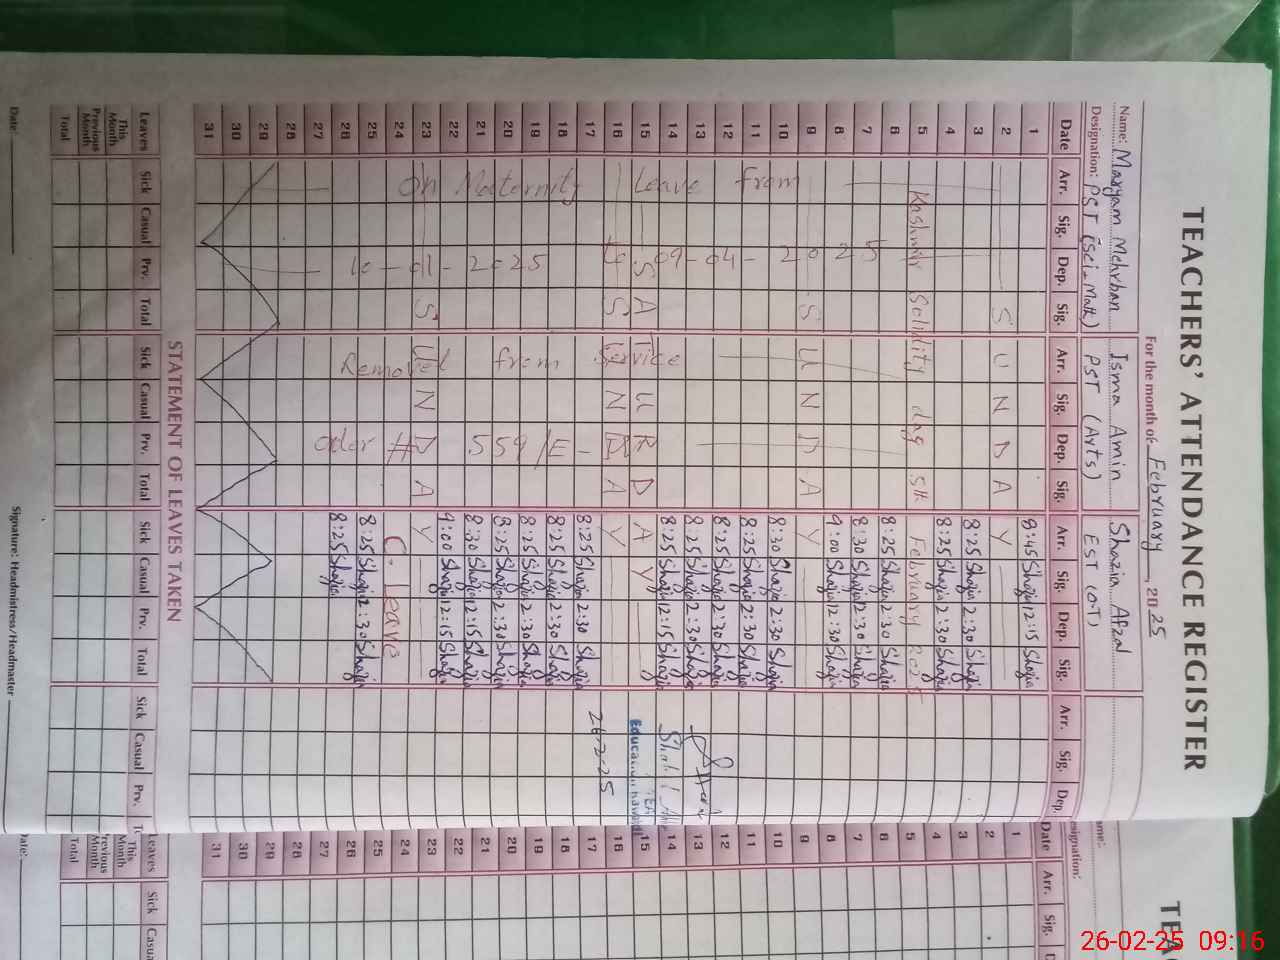 TEACHERS' ATTENDANCE REGISTER
For the month of February, 2025
Name: Maryam Mehrban Isma Amin Shazia Afzal
Designation: PST (Sci_Math) PST (Arts) EST (O.T)
Date Arr. Sig. Dep. Sig. Arr. Sig. Dep. Sig. Arr. Sig. Dep. Sig. Arr. Sig. Dep.
1 8:45 Shazia 12:15 Shazia
2 S U N D A Y
3 8:25 Shazia 2:30 Shazia
4 8:25 Shazia 2:30 Shazia
5 Kashmir Solidity day 5th February 2025
6 8:25 Shazia 2:30 Shazia
7 8:30 Shazia 12:30 Shazia
8 9:00 Shazia 12:30 Shazia
9 S U N D A Y
10 8:30 Shazia 2:30 Shazia
11 8:25 Shazia 2:30 Shazia
12 8:25 Shazia 2:30 Shazia
13 8:25 Shazia 2:30 Shazia
14 8:25 Shazia 12:15 Shazia
15 S A T U R D A Y
16 S U N D A Y
17 8:25 Shazia 2:30 Shazia
18 8:25 Shazia 2:30 Shazia
19 8:25 Shazia 2:30 Shazia
20 8:25 Shazia 2:30 Shazia
21 8:30 Shazia 12:15 Shazia
22 9:00 Shazia 12:15 Shazia
23 S U N D A Y
24 C. Leave
25 8:25 Shazia 2:30 Shazia
26 8:25 Shazia
27
28
29
30
31
On Maternity Leave from
10-01-2025 to 09-04-2025
Removed from Service
Odor # 559/E-
26-2-25
STATEMENT OF LEAVES TAKEN
Leaves Sick Casual Prv. Total Sick Casual Prv. Total Sick Casual Prv. Total Sick Casual Prv.
This Month
Previous Month
Total
Date: Signature: Headmistress/Headmaster
TEA
Designation:
Date Arr. Sig.
1
2
3
4
5
6
7
8
9
10
11
12
13
14
15
16
17
18
19
20
21
22
23
24
25
26
27
28
29
30
31
Leaves Sick
This Month
Previous Month
Total
Date:
26-02-25 09:16